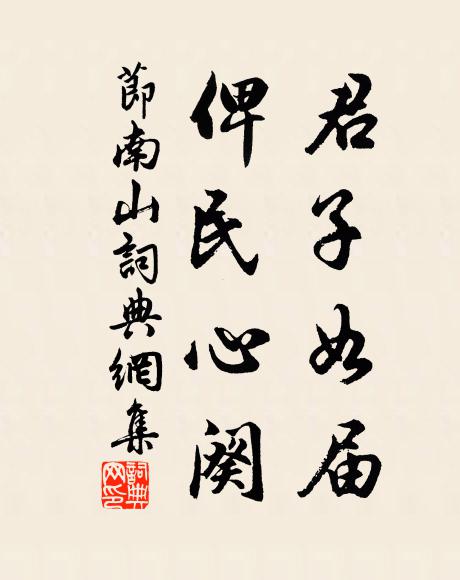 君子如届
俾民心阕
節南山詞典網集
詞典
网印